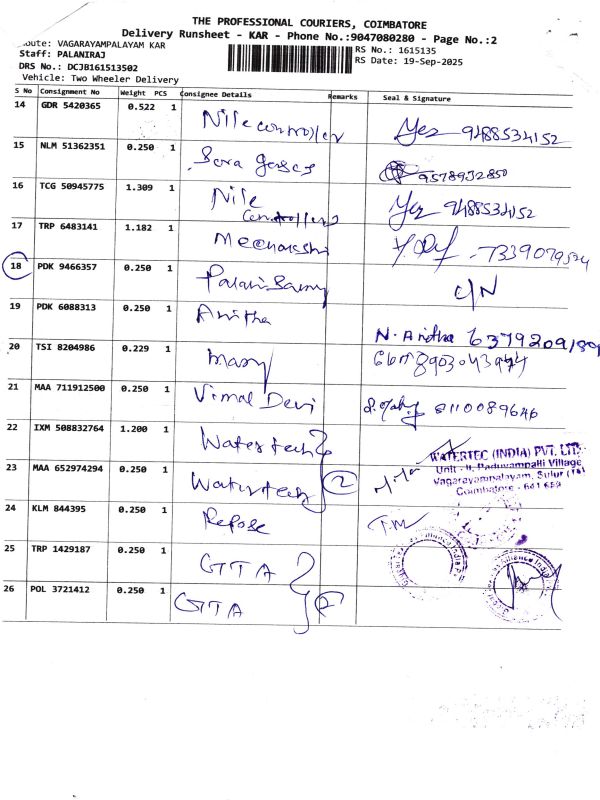 THE PROFESSIONAL COURIERS, COIMBATORE
Delivery Runsheet - KAR - Phone No.:9047080280 - Page No.:2
oute: VAGARAYAMPALAYAM KAR
RS No.: 1615135
Staff: PALANIRAJ
RS Date: 19-Sep-2025
DRS No.: DCJB161513502
Vehicle: Two Wheeler Delivery
S No Consignment No Weight PCS Consignee Details Remarks Seal & Signature
14 GDR 5420365 0.522 1 Nile controller Yez 9488534152
15 NLM 51362351 0.250 1 9578932850
16 TCG 50945775 1.309 1 Nile Controllers Yez 9488534152
17 TRP 6483141 1.182 1 Meenakshi 7339079534
18 PDK 9466357 0.250 1 Palani Samy C/N
19 PDK 6088313 0.250 1 Anitha N. Anitha 6379209189
20 TSI 8204986 0.229 1 mary
21 MAA 711912500 0.250 1 Vimal Devi 8110089646
22 IXM 508832764 1.200 1 Watertech
WATERTEC (INDIA) PVT. LTD.
Unit - II, Paduvampalli Village
Vagarayampalayam, Sulur (Tk)
Coimbatore - 641 659
23 MAA 652974294 0.250 1 Watertech 2
24 KLM 844395 0.250 1 Repose T.M
25 TRP 1429187 0.250 1 GTTA
26 POL 3721412 0.250 1 GTTA